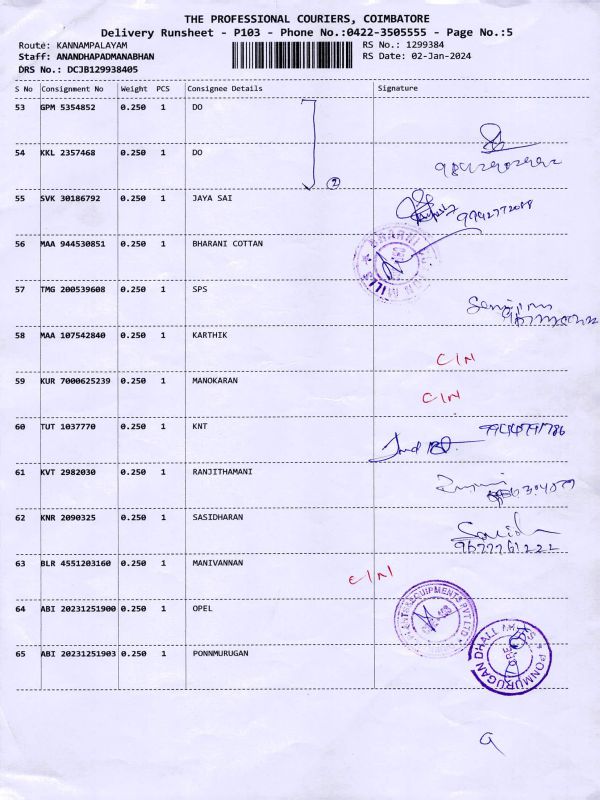 THE PROFESSIONAL COURIERS, COIMBATORE
Delivery Runsheet - P103 - Phone No.:0422-3505555 - Page No.:5
Route: KANNAMPALAYAM RS No.: 1299384
Staff: ANANDHAPADMANABHAN RS Date: 02-Jan-2024
DRS No.: DCJB129938405
S No Consignment No Weight PCS Consignee Details Signature
53 GPM 5354852 0.250 1 DO
54 KKL 2357468 0.250 1 DO
2
55 SVK 30186792 0.250 1 JAYA SAI
9942772088
56 MAA 944530851 0.250 1 BHARANI COTTAN
57 TMG 200539608 0.250 1 SPS
58 MAA 107542840 0.250 1 KARTHIK
C/N
59 KUR 7000625239 0.250 1 MANOKARAN
C/N
60 TUT 1037770 0.250 1 KNT
61 KVT 2982030 0.250 1 RANJITHAMANI
62 KNR 2090325 0.250 1 SASIDHARAN
9677761222
63 BLR 4551203160 0.250 1 MANIVANNAN
C/N
64 ABI 20231251900 0.250 1 OPEL
EQUIPMENTS PVT LTD
65 ABI 20231251903 0.250 1 PONNMURUGAN
PONMURUGAN DHALL